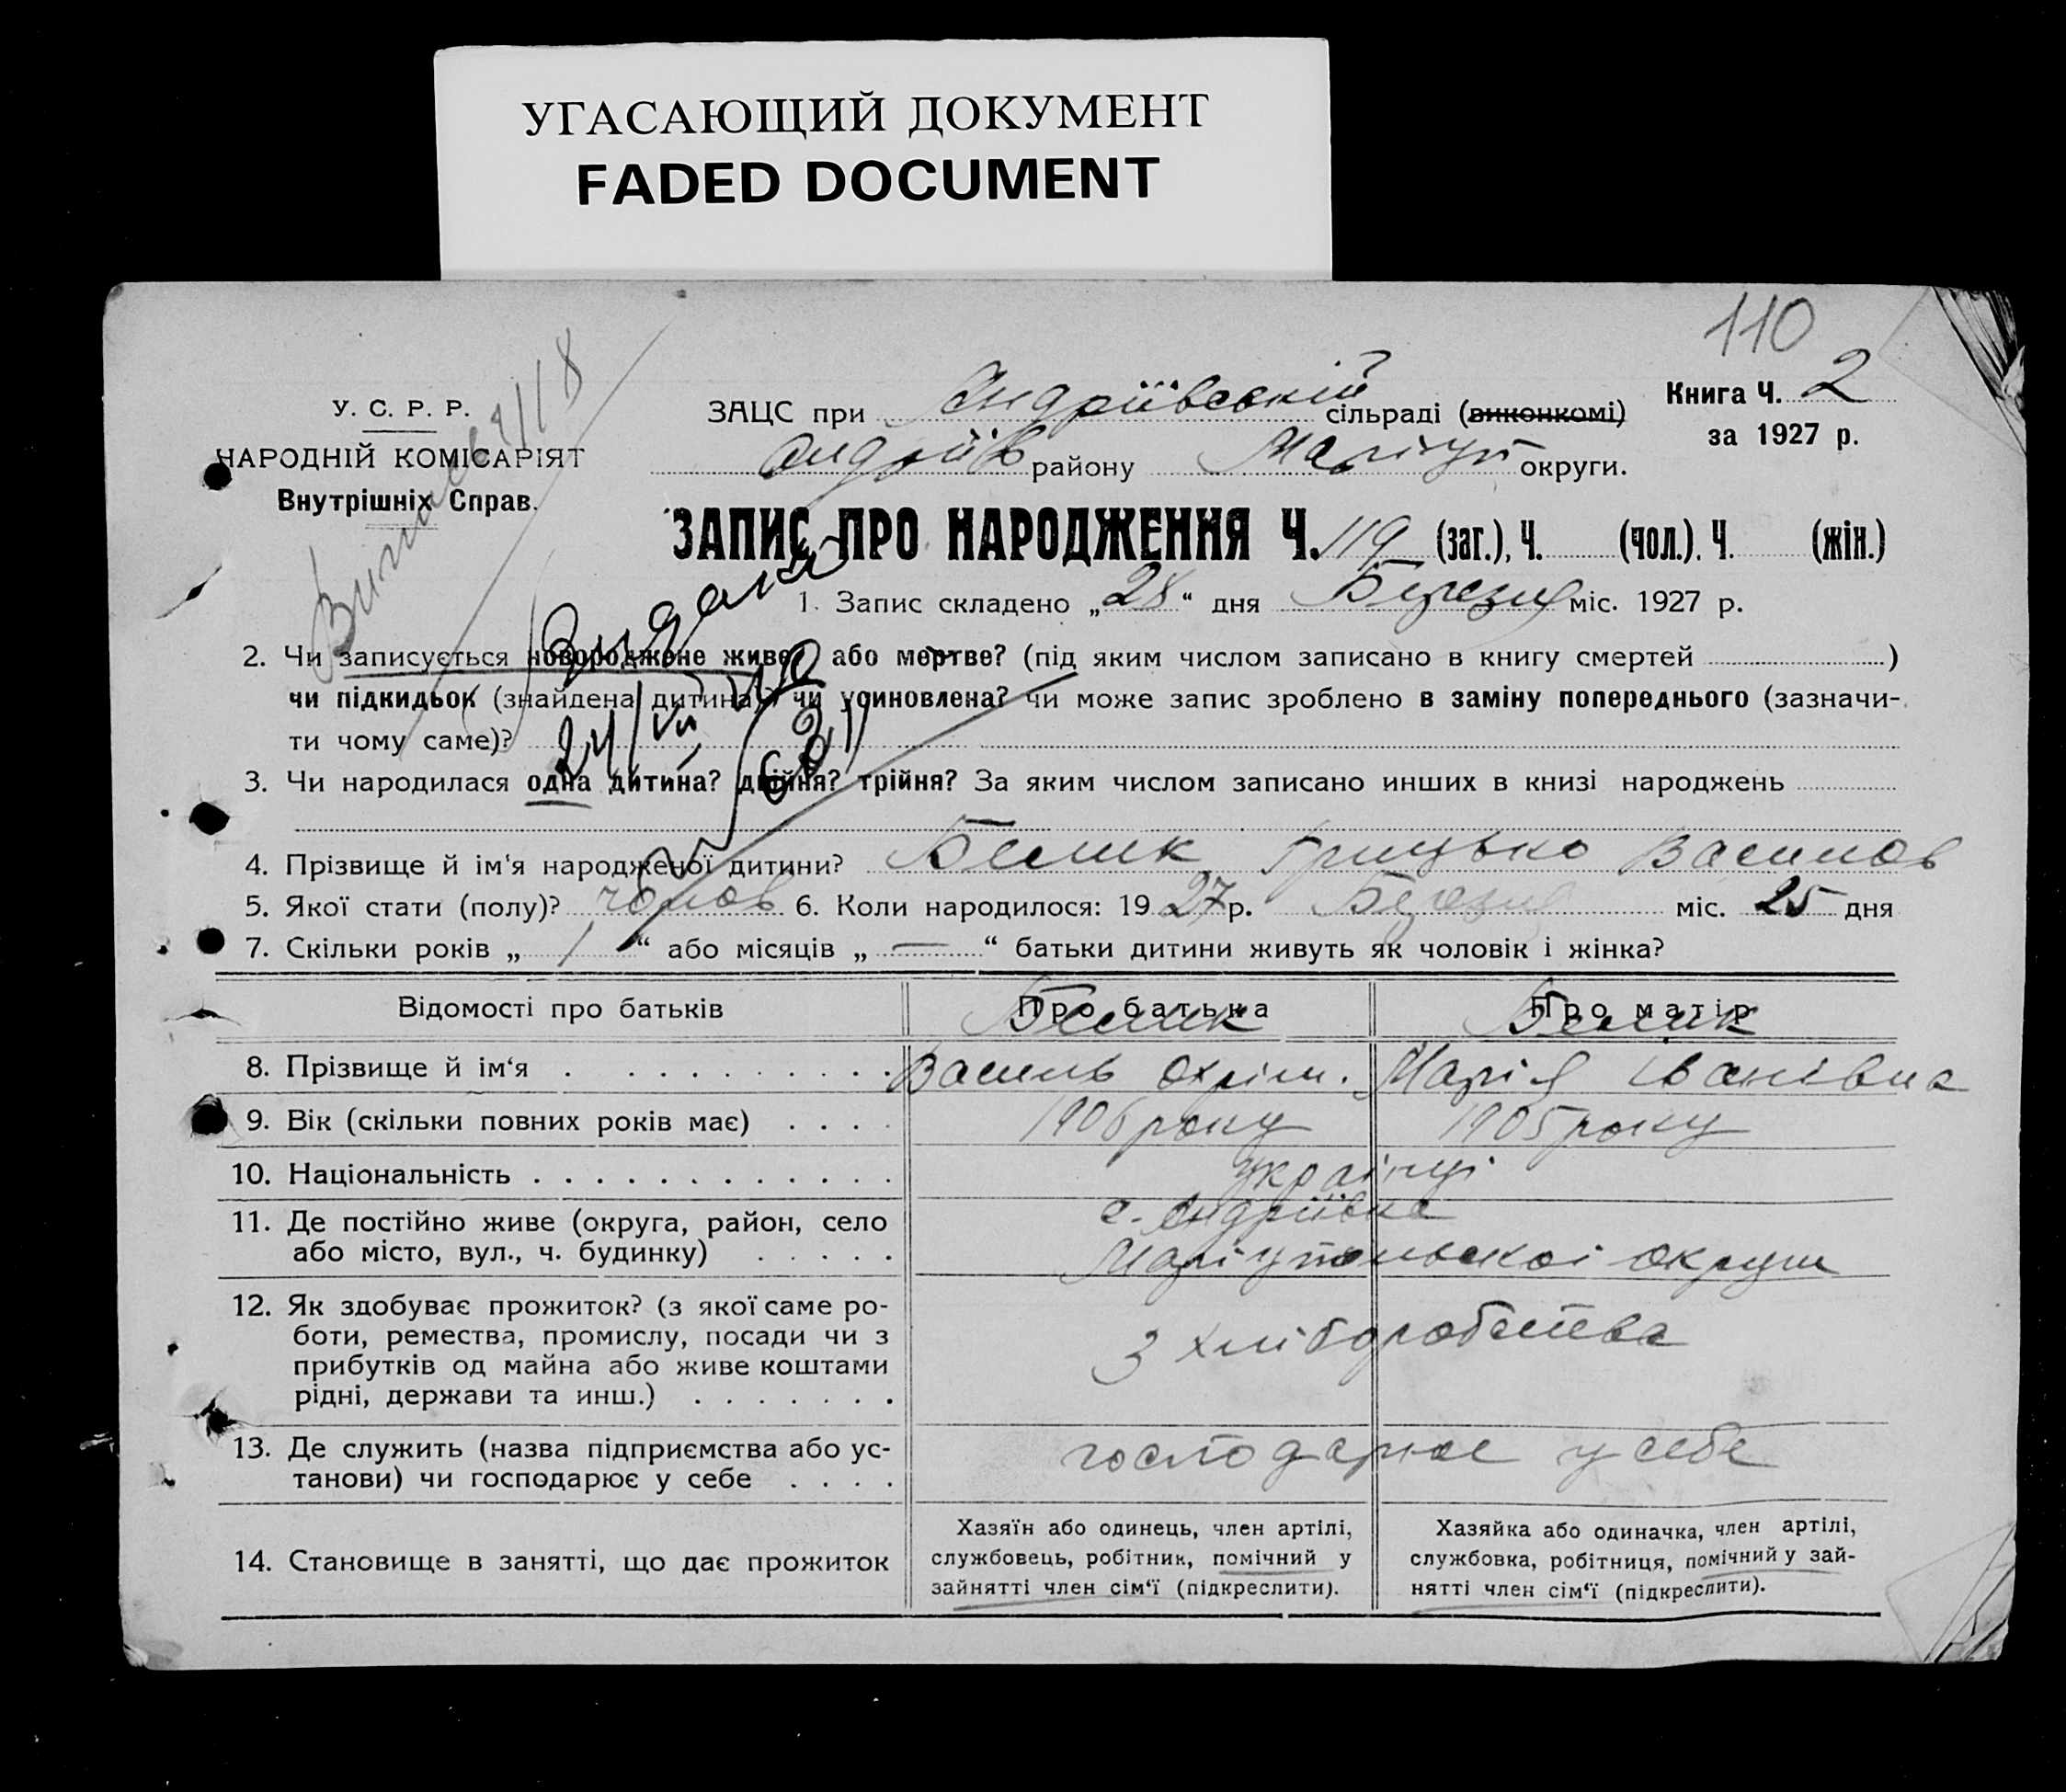 УГАСАЮЩИЙ ДОКУМЕНТ
FADED DOCUMENT
110
У. С. Р. Р.
НАРОДНІЙ КОМІСАРІЯТ
Внутрішніх Справ.
ЗАЦС при Андріївській сільраді (виконкомі)
Книга Ч. 2
за 1927 р.
Андріїв району Маріуп округи.
ЗАПИС ПРО НАРОДЖЕННЯ Ч. 119 (заг.), Ч. (чол.). Ч. (жін.)
1. Запис складено „28“ дня Березня міс. 1927 р.
2. Чи записується новороджене живе, або мертве? (під яким числом записано в книгу смертей )
чи підкидьок (знайдена дитина)? чи усиновлена? чи може запис зроблено в заміну попереднього (зазначи-
ти чому саме)?
24/VII
3. Чи народилася одна дитина? двійня? трійня? За яким числом записано инших в книзі народжень
4. Прізвище й ім'я народженої дитини? Белик Грицько Васильов
5. Якої стати (полу)? чолов 6. Коли народилося: 1927 р. Березня міс. 25 дня
7. Скільки років „1“ або місяців „—“ батьки дитини живуть як чоловік і жінка?
Відомості про батьків Про батька Про матір
Белик Белик
8. Прізвище й ім‘я Василь Охрім. Марія Іванівна
9. Вік (скільки повних років має) 1906 року 1905 року
10. Національність українці
11. Де постійно живе (округа, район, село с. Андріївка
або місто, вул., ч. будинку) Маріупольскоі округи
12. Як здобуває прожиток? (з якої саме ро-
боти, ремества, промислу, посади чи з
прибутків од майна або живе коштами
рідні, держави та инш.)
з хліборобства
13. Де служить (назва підприємства або ус-
танови) чи господарює у себе
господарює у себе
14. Становище в занятті, що дає прожиток
Хазяїн або одинець, член артілі,
службовець, робітник, помічний у
зайнятті член сім‘ї (підкреслити).
Хазяйка або одиначка, член артілі,
службовка, робітниця, помічний у зай-
нятті член сім‘ї (підкреслити).